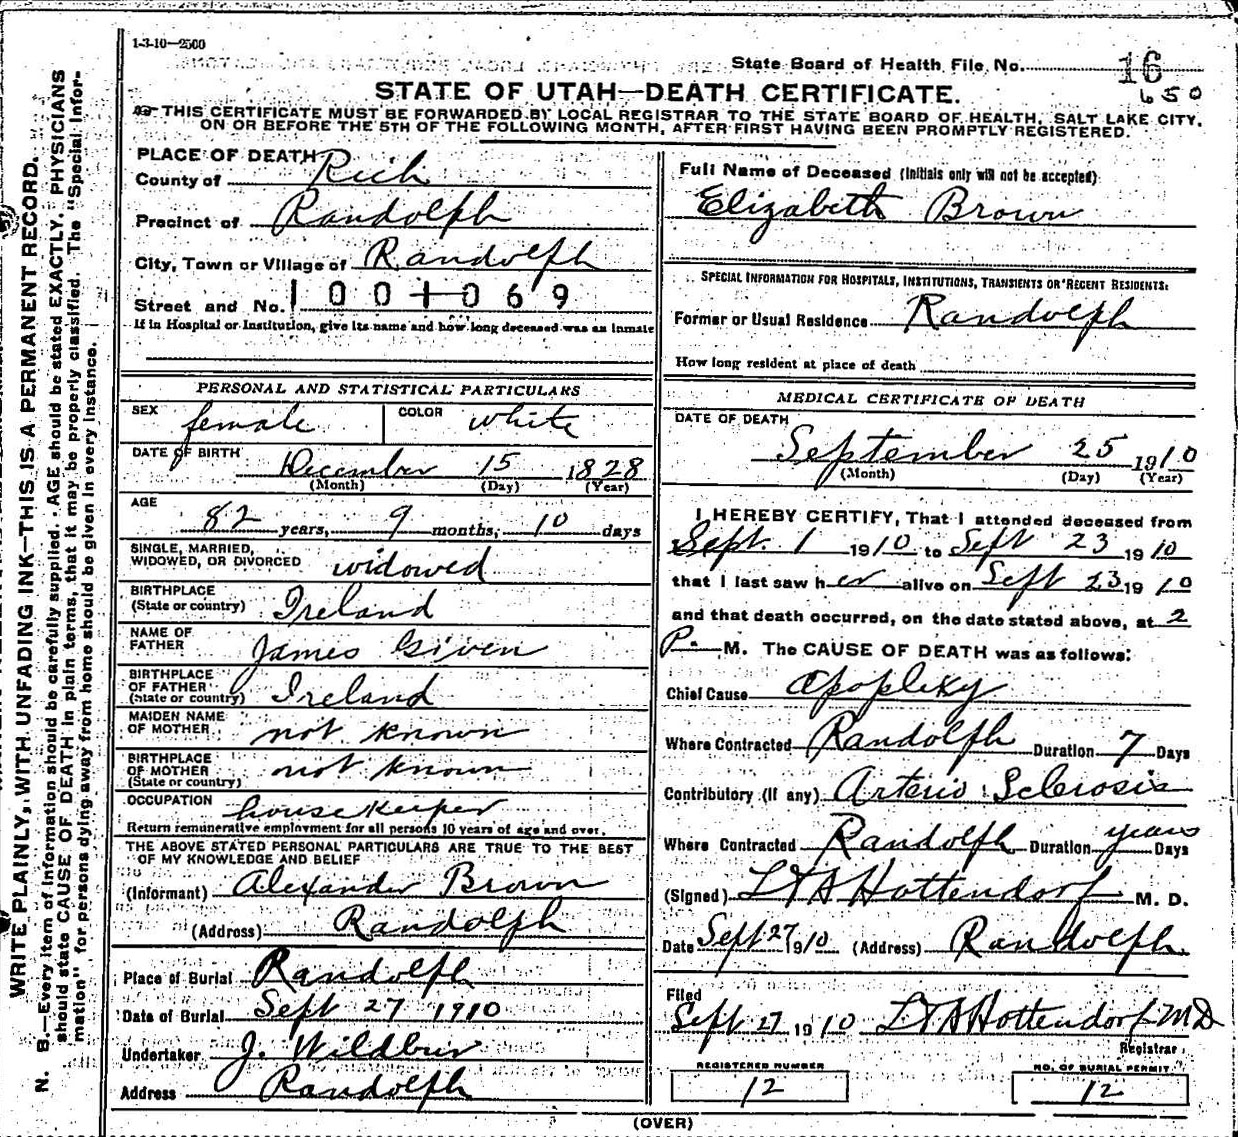 1-3-10—2500
State Board of Health File No. 16
650
STATE OF UTAH—DEATH CERTIFICATE.
THIS CERTIFICATE MUST BE FORWARDED BY LOCAL REGISTRAR TO THE STATE BOARD OF HEALTH, SALT LAKE CITY,
ON OR BEFORE THE 5TH OF THE FOLLOWING MONTH, AFTER FIRST HAVING BEEN PROMPTLY REGISTERED.
PLACE OF DEATH
County of Rich
Precinct of Randolph
City, Town or Village of Randolph
Street and No. 1001069
If in Hospital or Institution, give its name and how long deceased was an inmate
PERSONAL AND STATISTICAL PARTICULARS
SEX female COLOR white
DATE OF BIRTH December 15 1828
(Month) (Day) (Year)
AGE 82 years, 9 months, 10 days
SINGLE, MARRIED,
WIDOWED, OR DIVORCED widowed
BIRTHPLACE
(State or country) Ireland
NAME OF
FATHER James Given
BIRTHPLACE
OF FATHER
(State or country) Ireland
MAIDEN NAME
OF MOTHER not known
BIRTHPLACE
OF MOTHER
(State or country) not known
OCCUPATION housekeeper
Return remunerative employment for all persons 10 years of age and over.
THE ABOVE STATED PERSONAL PARTICULARS ARE TRUE TO THE BEST
OF MY KNOWLEDGE AND BELIEF
(Informant) Alexander Brown
(Address) Randolph
Place of Burial Randolph
Date of Burial Sept 27 1910
Undertaker J. Wildbur
Address Randolph
Full Name of Deceased (Initials only will not be accepted)
Elizabeth Brown
SPECIAL INFORMATION FOR HOSPITALS, INSTITUTIONS, TRANSIENTS OR RECENT RESIDENTS:
Former or Usual Residence Randolph
How long resident at place of death
MEDICAL CERTIFICATE OF DEATH
DATE OF DEATH
September 25 1910
(Month) (Day) (Year)
I HEREBY CERTIFY, That I attended deceased from
Sept. 1 1910 to Sept 23 1910
that I last saw her alive on Sept 23 1910
and that death occurred, on the date stated above, at 2
P. M. The CAUSE OF DEATH was as follows:
Chief Cause apoplexy
Where Contracted Randolph Duration 7 Days
Contributory (if any) Arterio Sclerosis
Where Contracted Randolph Duration years Days
(Signed) LTA Hottendorf M. D.
Date Sept 27 1910 (Address) Randolph
Filed
Sept 27 1910 LTA Hottendorf MD
Registrar
REGISTERED NUMBER
12
NO. OF BURIAL PERMIT
12
(OVER)
WRITE PLAINLY, WITH UNFADING INK—THIS IS A PERMANENT RECORD.
N. B.—Every item of information should be carefully supplied. AGE should be stated EXACTLY. PHYSICIANS
should state CAUSE OF DEATH in plain terms, that it may be properly classified. The "Special Infor-
mation" for persons dying away from home should be given in every instance.